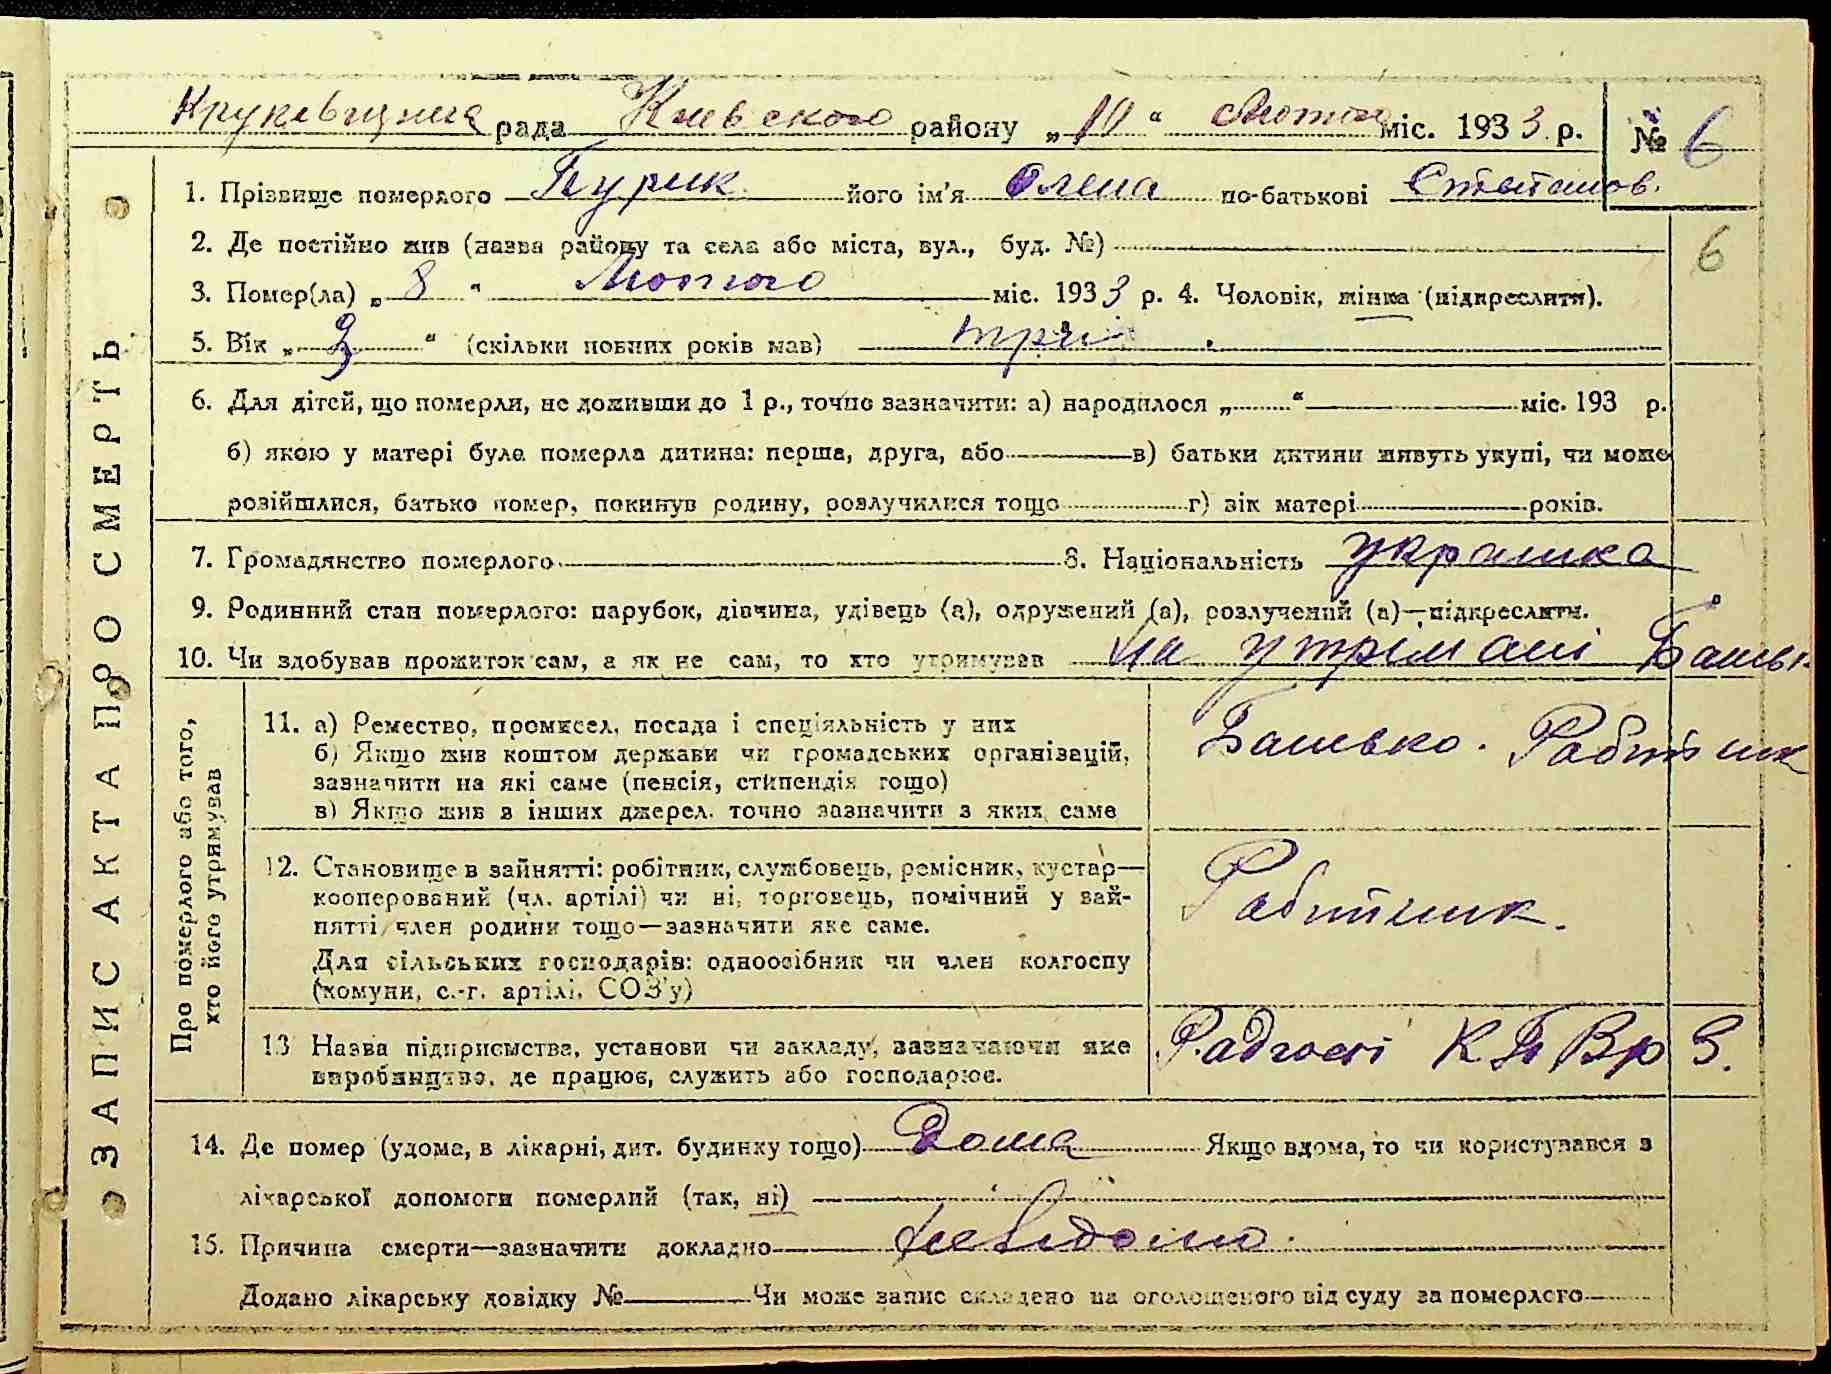 рада Киевского району „10“ Лютого міс. 1933 р. № 6
1. Прізвище померлого Пурик його ім'я Олена по-батькові Степанов.
2. Де постійно жив (назва району та села або міста, вул., буд. №)
6
3. Помер(ла) „8“ Лютого міс. 1933 р. 4. Чоловік, жінка (підкреслити).
5. Вік „3“ (скільки повних років мав) три
6. Для дітей, що померли, не доживши до 1 р., точно зазначити: а) народилося „ “ міс. 193 р.
б) якою у матері була померла дитина: перша, друга, або в) батьки дитини живуть укупі, чи може
розійшлися, батько помер, покинув родину, розлучилися тощо г) вік матері років.
7. Громадянство померлого 8. Національність украінка
9. Родинний стан померлого: парубок, дівчина, удівець (а), одружений (а), розлучений (а)—підкреслити.
10. Чи здобував прожиток сам, а як не сам, то хто утримував на утримані Батьк
ЗАПИС АКТА ПРО СМЕРТЬ
Про померлого або того,
хто його утримував
11. а) Ремество, промисел, посада і спеціяльність у них
б) Якщо жив коштом держави чи громадських організацій,
зазначити на які саме (пенсія, стипендія тощо)
в) Якщо жив з інших джерел, точно зазначити з яких саме
Батько. Робітник
12. Становище в зайнятті: робітник, службовець, ремісник, кустар—
кооперований (чл. артілі) чи ні, торговець, помічний у зай-
нятті член родини тощо—зазначити яке саме.
Для сільських господарів: одноосібник чи член колгоспу
(комуни, с.-г. артілі, СОЗ'у)
Робітник.
13 Назва підприємства, установи чи закладу, зазначаючи яке
виробництво, де працює, служить або господарює.
14. Де помер (удома, в лікарні, дит. будинку тощо) Дома Якщо вдома, то чи користувався з
лікарської допомоги померлий (так, ні)
15. Причина смерти—зазначити докладно невідомо.
Додано лікарську довідку № Чи може запис складено на оголошеного від суду за померлого